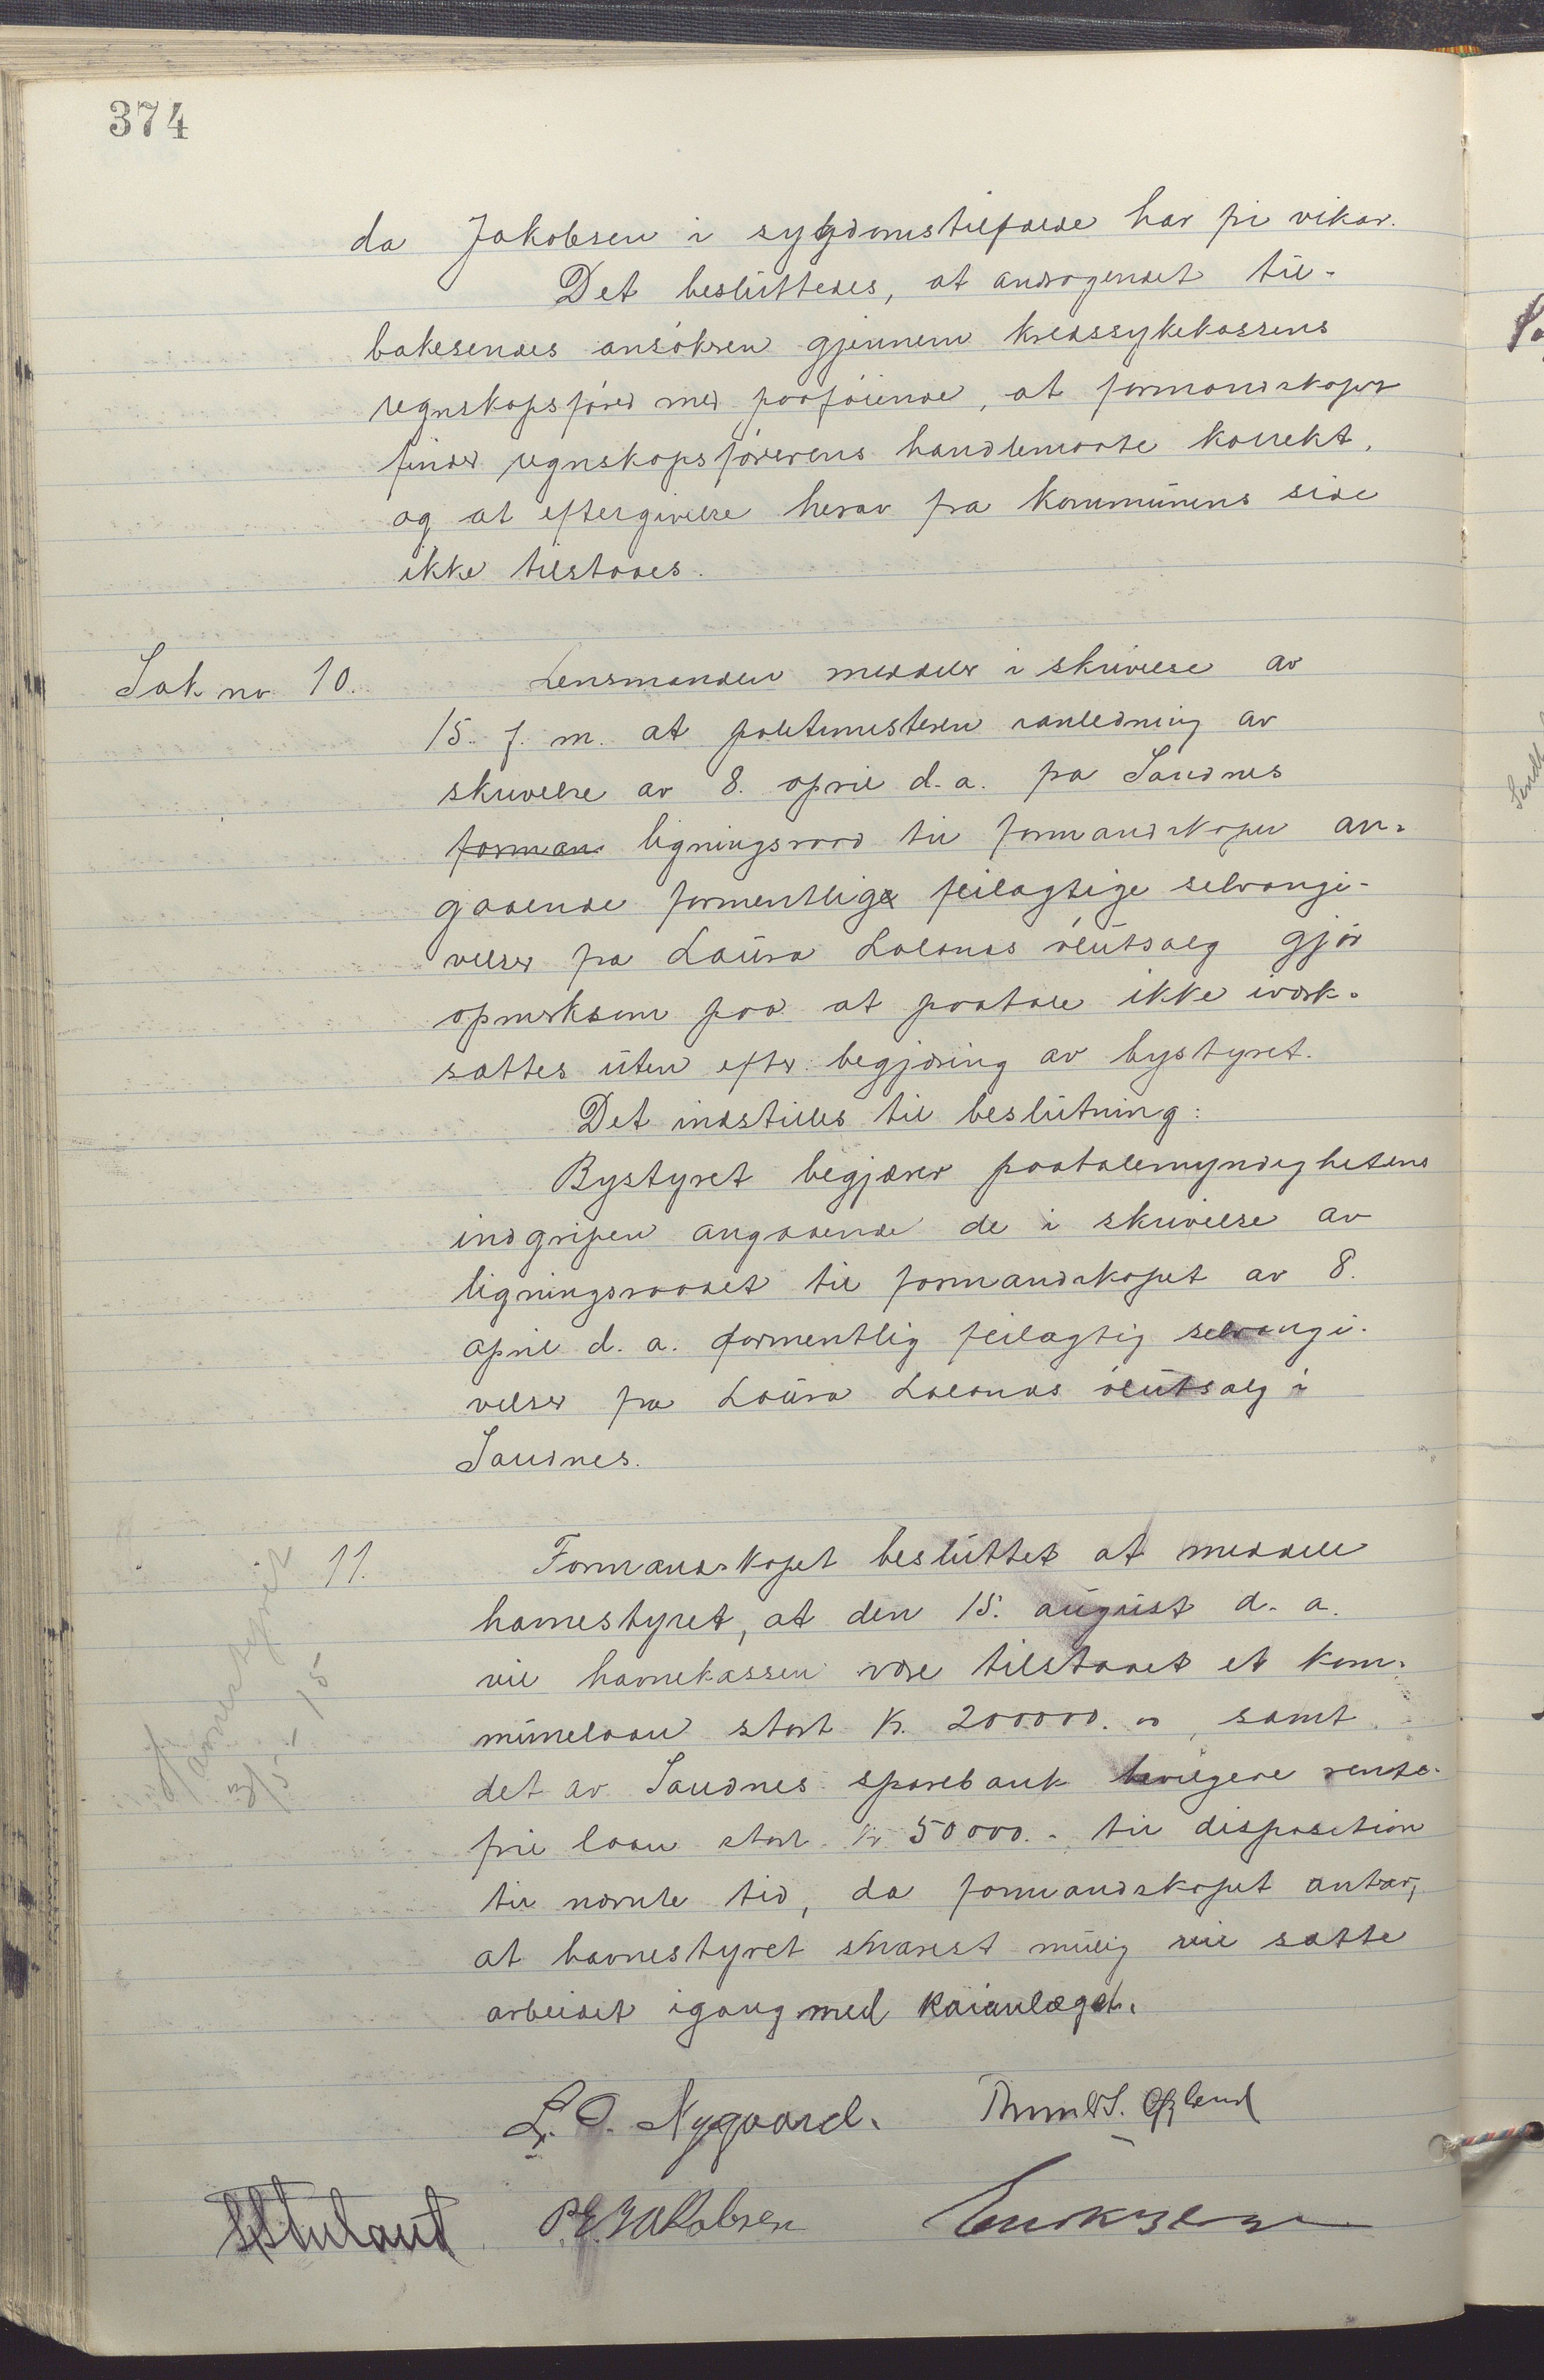 374
da Jakobsen i sygdomstilfælde har fri vikar.
Det besluttedes, at andragendet til-
bakesendes ansökren gjennem kredssykekassens
regnskapsförer med paaföiende, at formandskapet
finder regnskapsförerens handlemaate korrekt,
og at eftergivelse herav fra kommunens side
ikke tilstaaes.
Sak nr 10. Lensmanden meddeler i skrivelse av
15. f. m. at politimesteren i anledning av
skrivelse av 8. april d. a. fra Sandnes
forman ligningsraad til formandskapet an-
gaaende formentlige feilagtige selvangi-
velser fra Laura Lalands ölutsalg gjör
opmerksom paa at paatale ikke iverk-
sættes uten efter begjæring av bystyret.
Det indstilles til beslutning:
Bystyret begjærer paatalemyndighetens
indgripen angaaende de i skrivelse av
ligningsraadet til formandskapet av 8.
april d. a. formentlig feilagtig selvangi-
velser fra Laura Lalands ölutsalg i
Sandnes.
11. Formandskapet besluttet at meddele
havnestyret, at den 15. august d. a.
vil havnekassen være tilstaaet et kom-
munelaan stort kr. 200000.00, samt
det av Sandnes sparebank bevilgede rente-
frie laan stort kr 50000.- til disposition
til nævnte tid, da formandskapet antar,
at havnestyret snarest mulig vil sætte
arbeidet igang med kaianlæget.
Havnestyret
3/5 - 15
L. O. Nygaard.
P. E. Jakobsen
Eriksen